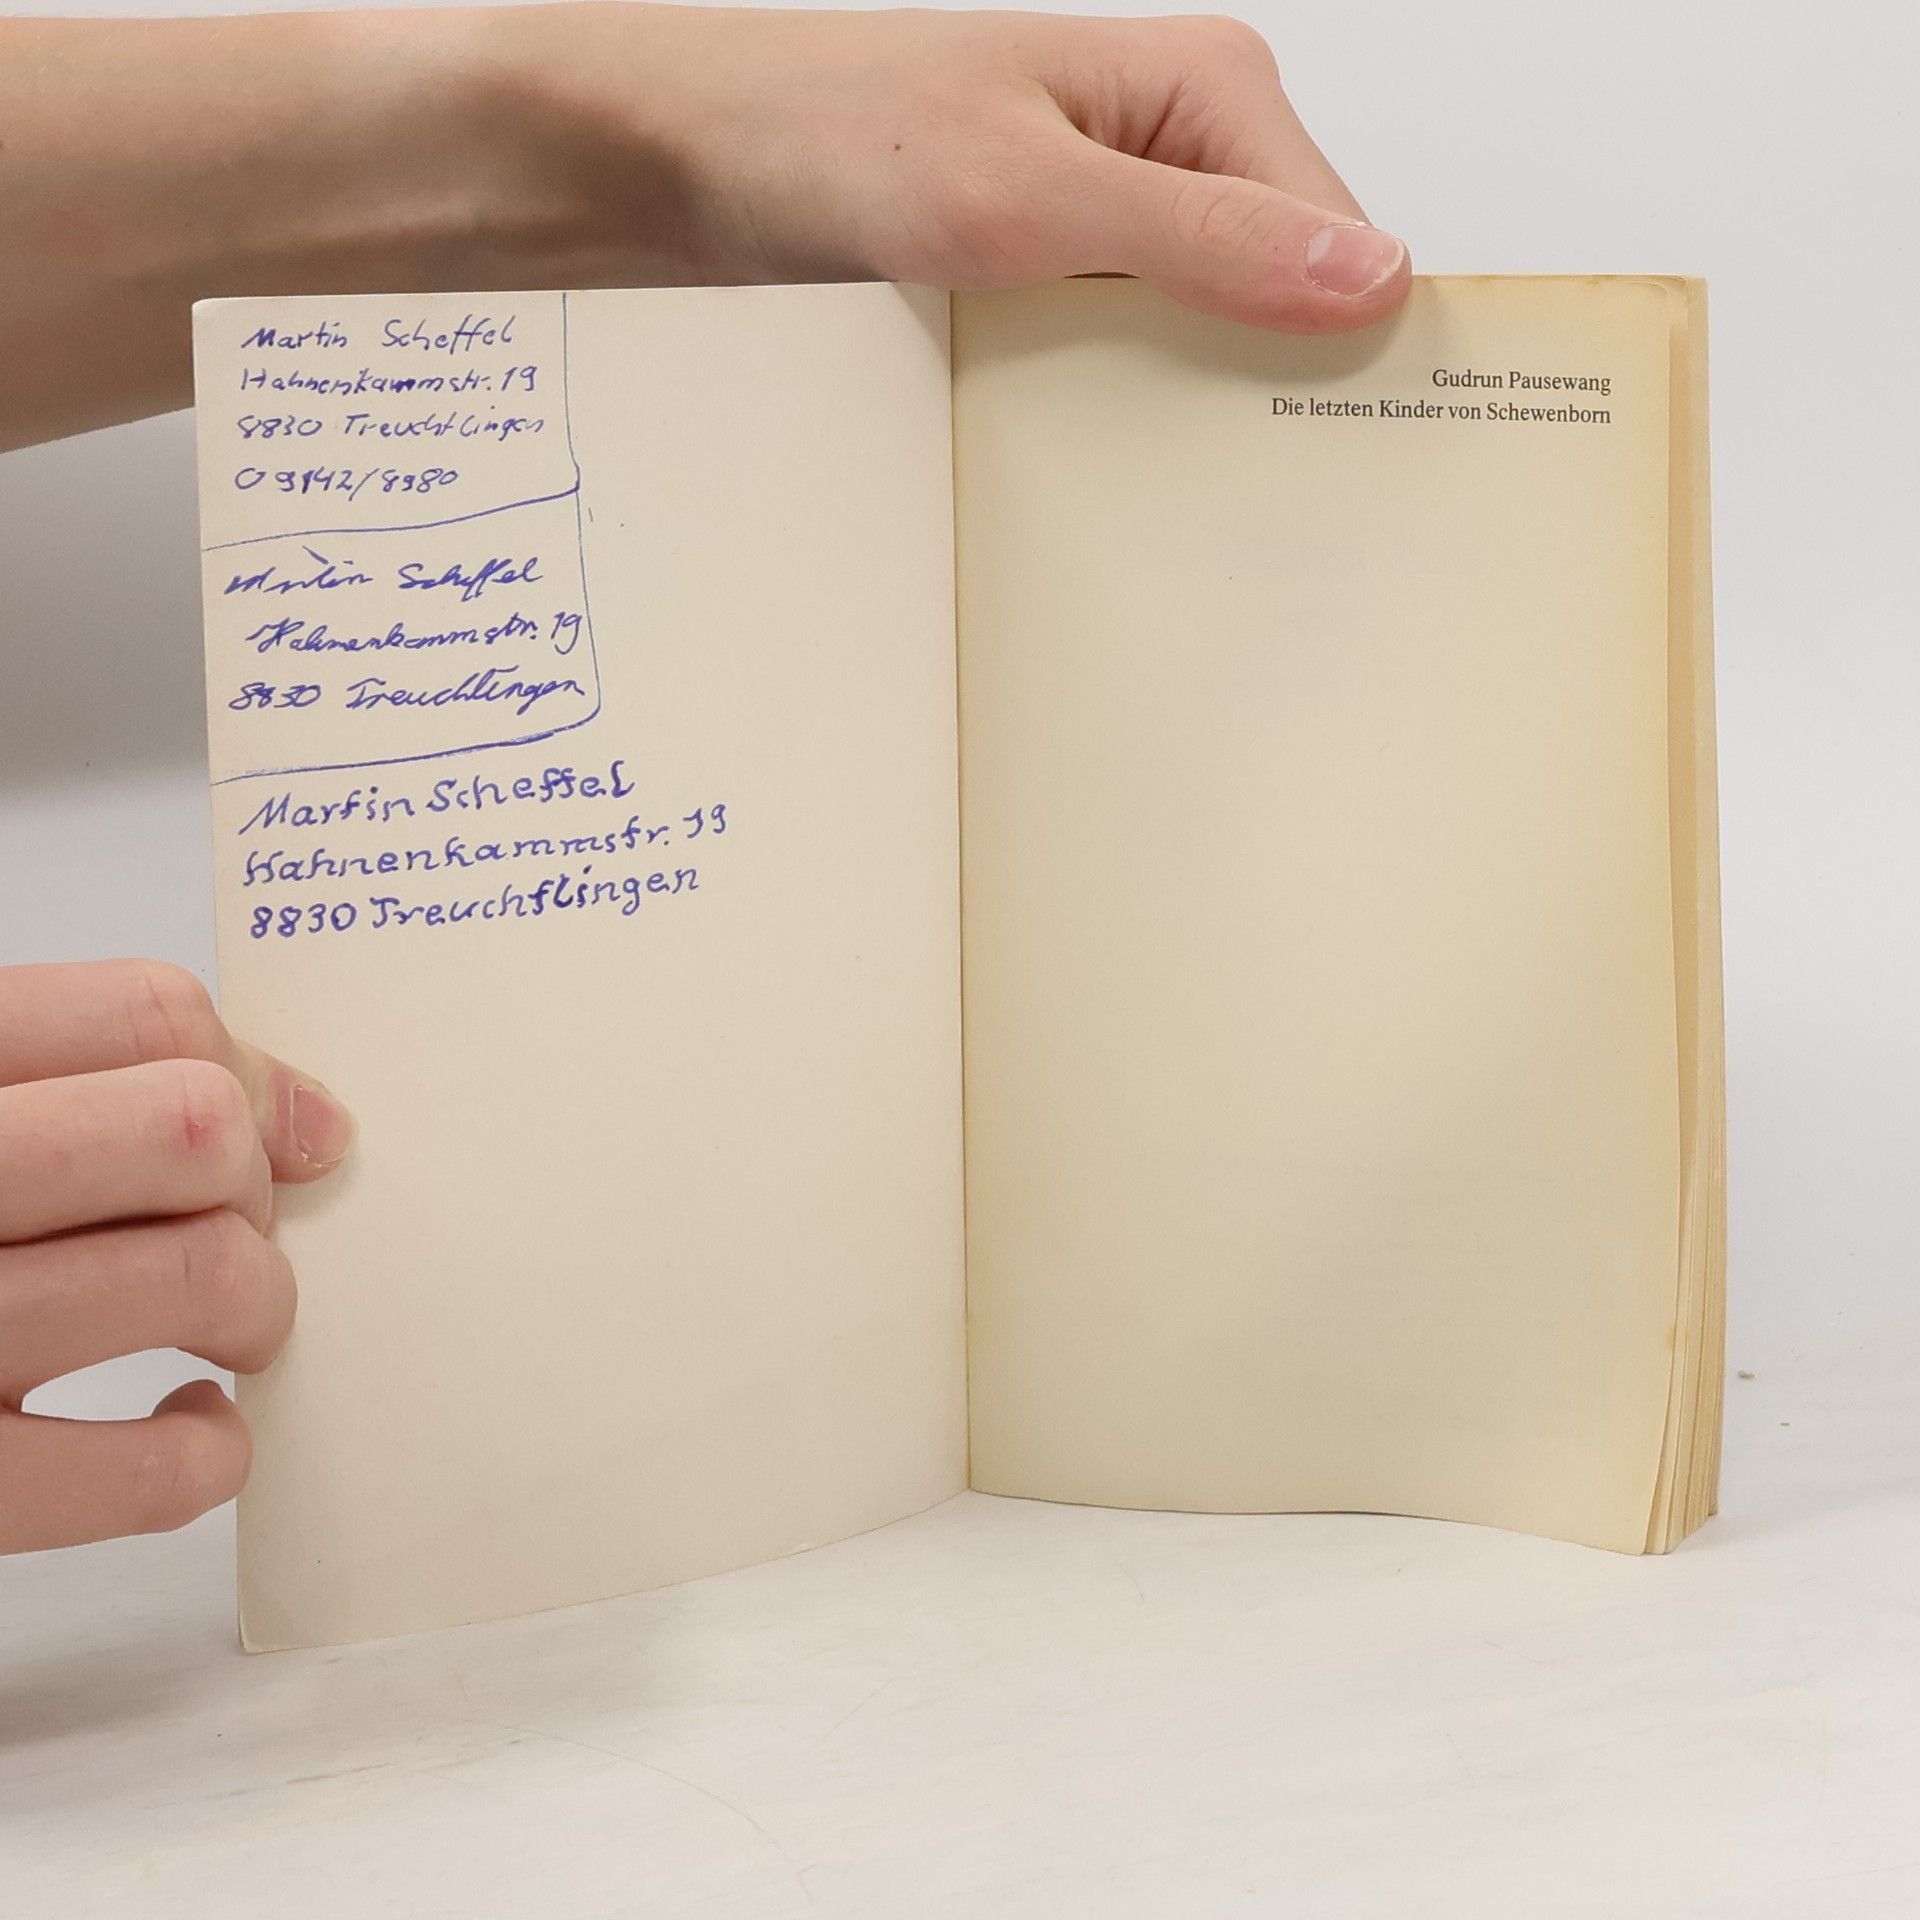 Martin Scheffel
Hahnenkammstr. 19
8830 Treuchtlingen
09142/8980
Martin Scheffel
Hahnenkammstr. 19
8830 Treuchtlingen
Martin Scheffel
Hahnenkammstr. 19
8830 Treuchtlingen
Gudrun Pausewang
Die letzten Kinder von Schewenborn